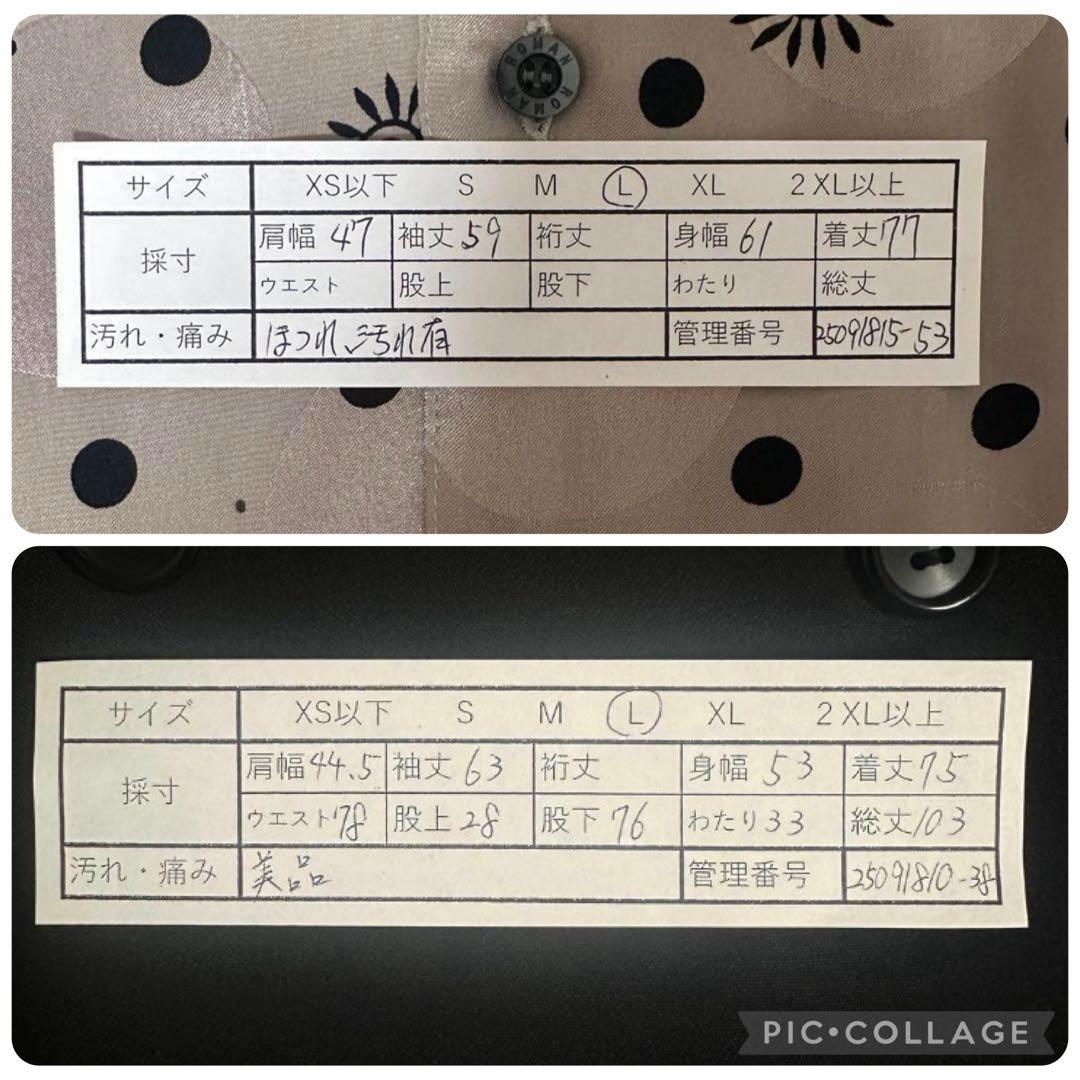 ROMAN ROMAN
サイズ XS以下 S M L XL 2XL以上
採寸 肩幅 47 袖丈 59 裄丈 身幅 61 着丈 77
ウエスト 股上 股下 わたり 総丈
汚れ・痛み ほつれ、汚れ有 管理番号 25091815-53
サイズ XS以下 S M L XL 2XL以上
採寸 肩幅 44.5 袖丈 63 裄丈 身幅 53 着丈 75
ウエスト 78 股上 28 股下 76 わたり 33 総丈 103
汚れ・痛み 美品 管理番号 25091810-38
PIC•COLLAGE